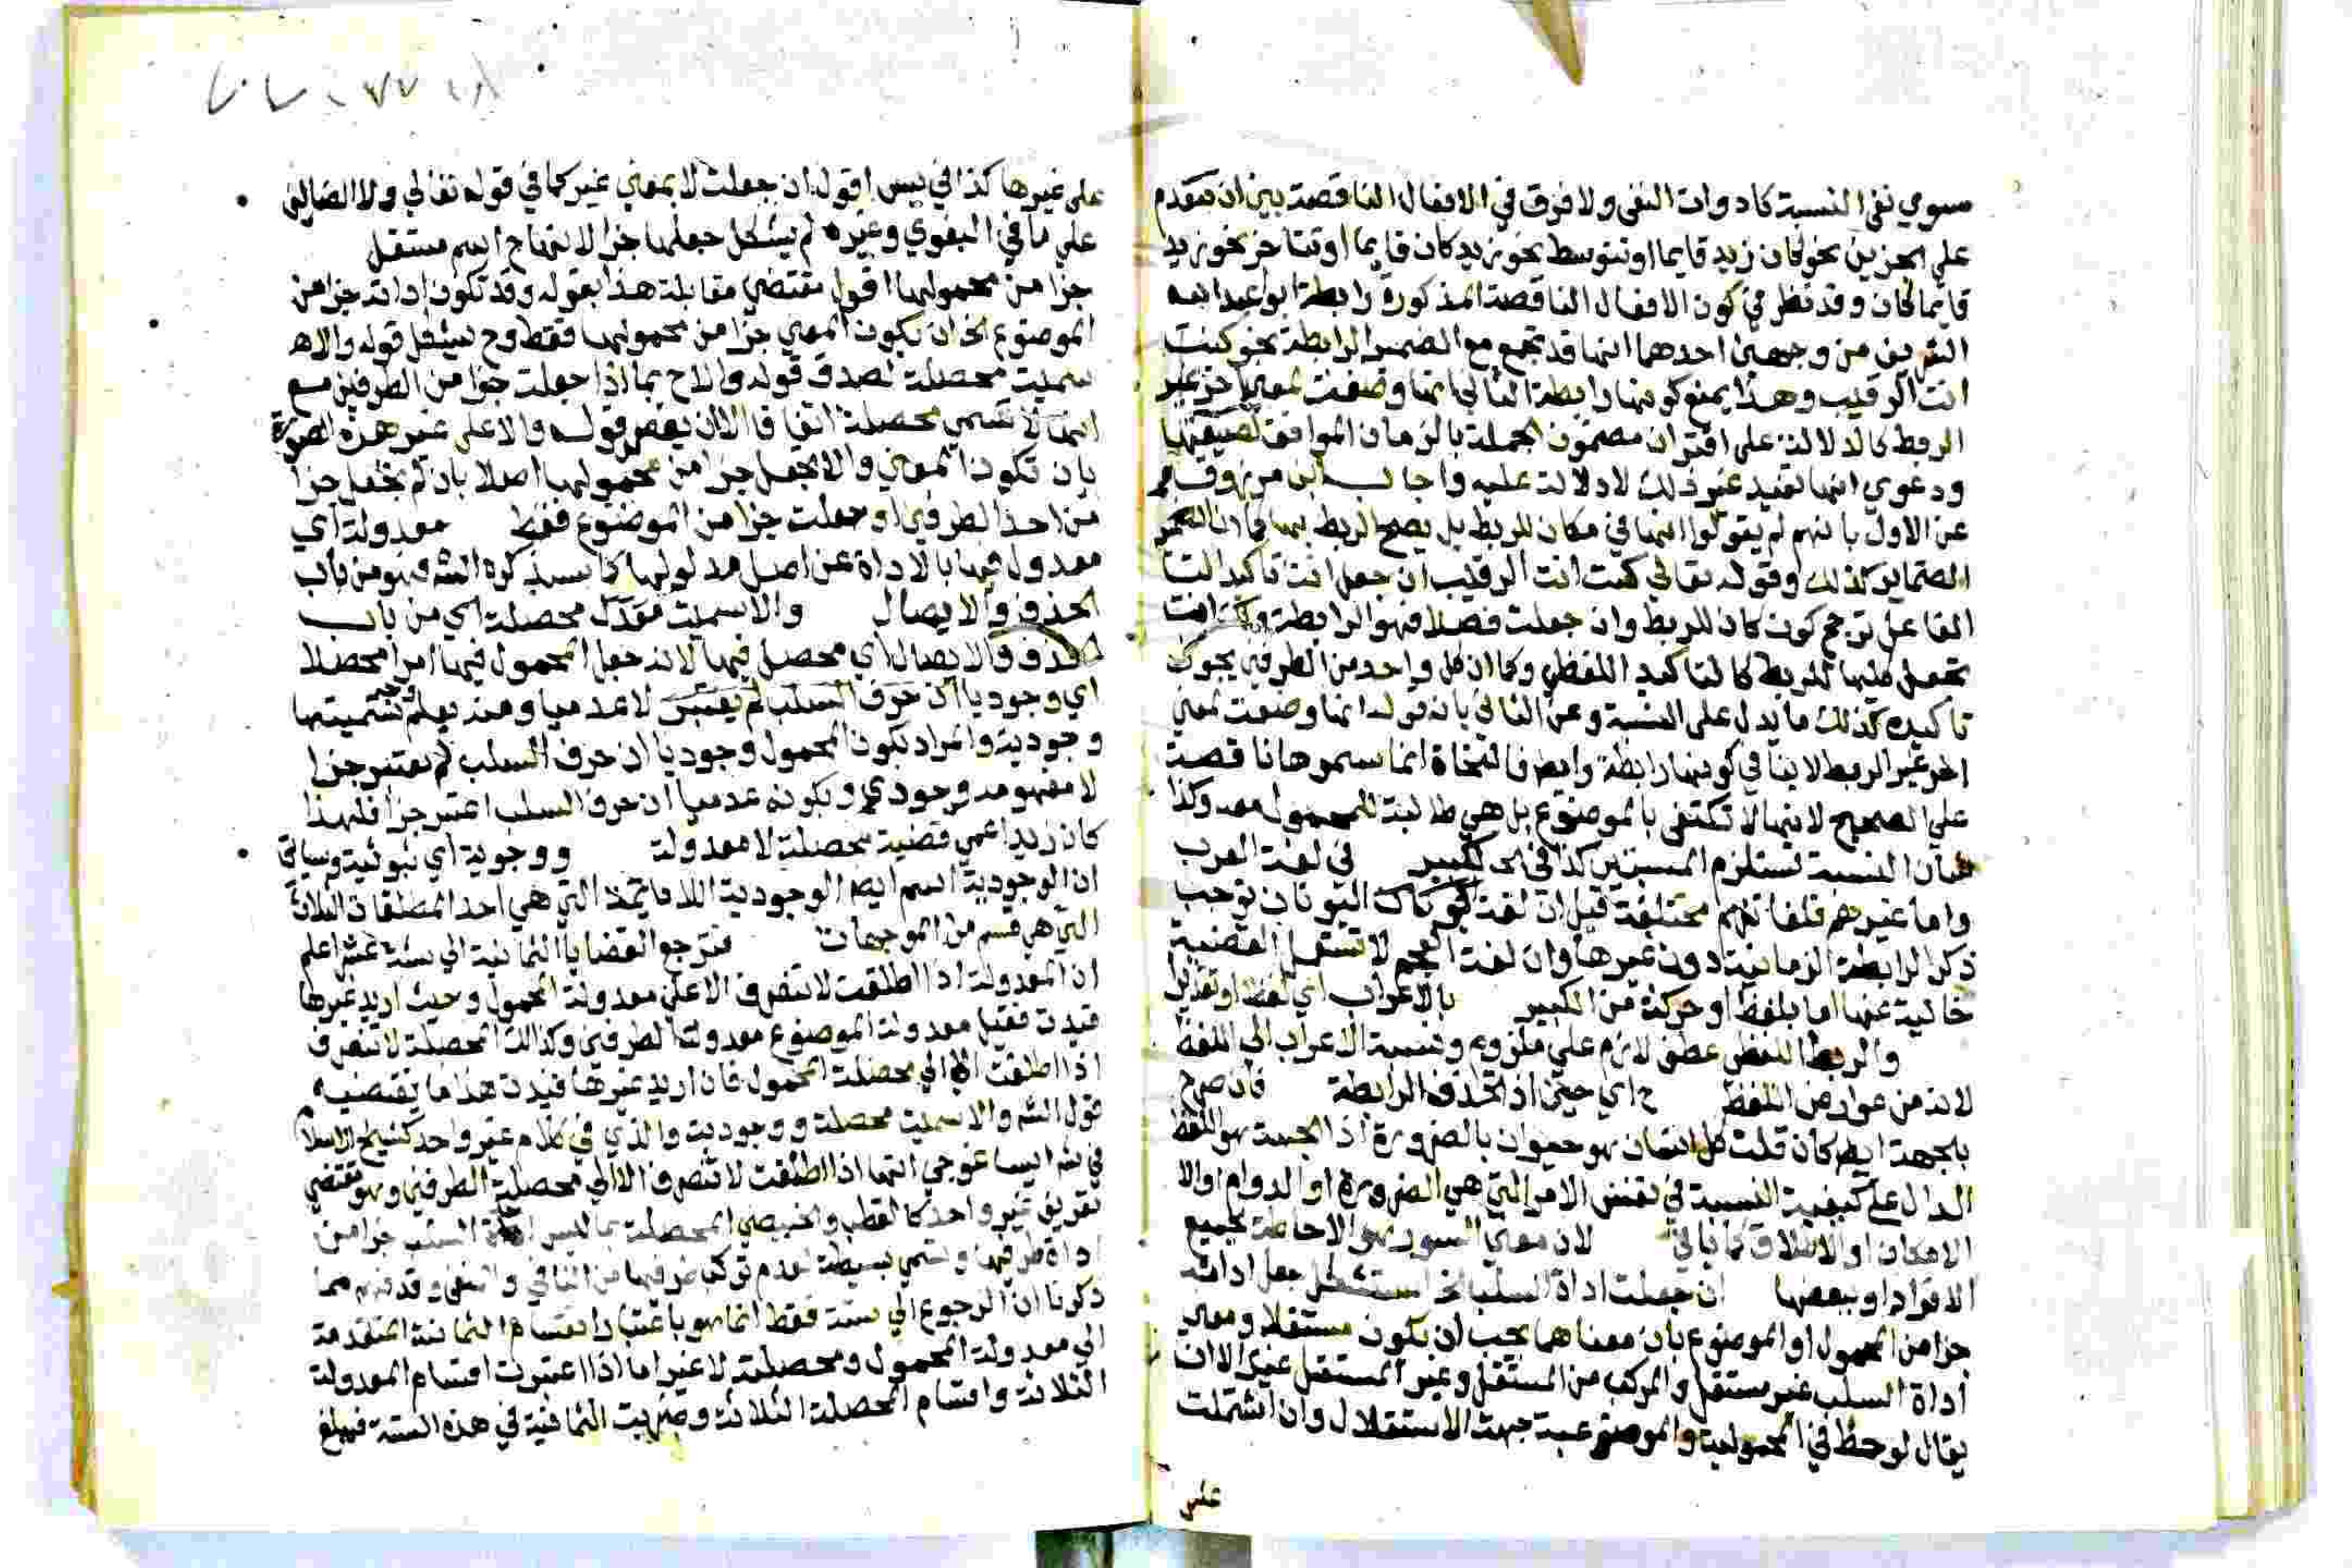 سوي نفي النسبة كادوات النفي ولا فرق في الافعال الناقصة بين ان تتقدم
علي الجزين نحو كان زيد قايما او تتوسط نحو زيد كان قايما او تتاخر نحو زيد
قايما كان وقد نظر في كون الافعال الناقصة المذكورة رابطة ابو عبد الله
الشريف من وجهين احدهما انها قد تجمع مع الضمير الرابطة نحو كنت
انت الرقيب وهذا يمنع كونها رابطة الثاني انها وضعت لمعني اخر غير
الربط كالدلالة علي اقتران مضمون الجملة بالزمان الموافق لصيغتها
ودعوي انها تفيد غير ذلك لا دلالة عليه واجاب ابن مرزوق
عن الاول بانهم لم يقولوا انها في مكان للربط بل يصح الربط بها كما ان
الضماير كذلك وقوله تعالي كنت انت الرقيب ان جعل انت تاكيد التا
الفاعل ترجح كون كان للربط وان جعلت فصلا فهو الرابطة وكنت انت
تجعل للربط كالتاكيد اللفظي وكما ان كل واحد من الطرفين يجوز
تاكيده كذلك ما يدل علي النسبة وعن الثاني بان قوله انها وضعت لمعني
اخر غير الربط لا ينافي كونها رابطة وايض فالنحاة انما سموها ناقصة
علي الصحيح لانها لا تكتفي بالموضوع بل هي طالبة للمحمول معه وكذا
شان النسبة تستلزم المنتسبين كذا في الكبير في لغة العرب
واما غيرهم فلغاتهم مختلفة قيل ان لغة اليونان توجب
ذكر الرابطة الزمانية دون غيرها وان لغة العجم لا تستعمل القضية
خالية عنها اما بلفظ او حركة من الكبير بالاعراب اي لفظا او تقديرا
والربط اللفظي عطف لازم علي ملزوم ونسبة الاعراب الي اللفظ
لانه من عوارض اللفظ ح اي حين اذ تحذف الرابطة فان صرح
بالجهة ايض كان قلت كل انسان هو حيوان بالضرورة اذ الجهة هو اللفظ
الدال علي كيفية النسبة في نفس الامر التي هي الضرورة او الدوام او الا
الامكان او الاطلاق كما ياتي لان معني السور هو الاحاطة بجميع
الافراد او ببعضها ان جعلت اداة السلب الخ استشكل جعل اداة
جزا من المحمول او الموضوع بان معناهما يجب ان يكون مستقلا ومعني
اداة السلب غير مستقل والمركب من المستقل وغير المستقل غير الا ان
يقال لوحظ في المحمولية والموضوعية جهة الاستقلال وان اشتملت
علي
علي غيرها كذا في يس اقول ان جعلت لا بمعني غير كما في قوله تعالي ولا الضالين
علي ما في البغوي وغيره لم يشكل جعلها جزا لانها ح اسم مستقل
جزا من محمولها اقول مقتضي مقابلة هذا بقوله وقد تكون اداته جزا من
الموضوع الخ ان يكون المعني جزا من محمولها فقط وح يشكل قوله والا
سميت محصلة لصدق قوله والا ح بما اذا جعلت جزا من الطرفين مع
انها لا تسمي محصلة اتفاقا الا ان يقصر قوله والا علي غير هذه الصورة
بان تكون المعني والا تجعل جزا من محمولها اصلا بان لم تجعل جزا
من احد الطرفين او جعلت جزا من الموضوع فقط معدولة اي
معدول فيها بالاداة عن اصل مدلولها كما سيذكره الش فهو من باب
الحذف والايصال والا سميت محصلة اي من باب
الحذف والايصال اي محصل فيها لانه جعل المحمول فيها امرا محصلا
اي وجوديا اي ان حرف السلب لم يعتبر لا عدميا ومنه يعلم وجه تسميتها
وجودية والمراد بكون المحمول وجوديا ان حرف السلب لم يعتبر جزا
لا مفهومه وجودي وبكونه عدميا ان حرف السلب اعتبر جزا فلهذا
كان زيد اعمي قضية محصلة لا معدولة ووجودية اي ثبوتية وسياتي
ان الوجودية اسم ايض الوجودية اللادايمة التي هي احد المطلقات الثلاث
التي هي قسم من الموجهات فترجع القضايا الثمانية الي ستة عشر اعلم
ان المعدولة اذا اطلقت لا تنصرف الا علي معدولة المحمول وحيث اريد غيرها
قيدت فقيل معدولة الموضوع معدولة الطرفين وكذلك المحصلة لا تنصرف
اذا اطلقت الا الي محصلة المحمول فان اريد غيرها قيدت هذا ما يقتضيه
قول الش والا سميت محصلة ووجودية والذي في كلام غير واحد كشيخ الاسلام
في ش ايساغوجي انها اذا اطلقت لا تنصرف الا الي محصلة الطرفين وهو مقتضي
تعريف غير واحد كالقطب والخبيصي المحصلة بما ليس اداة السلب جزا من
طرفيها وتسمي بسيطة لعدم تركب طرفيها من الثاني والنفي وقد فهم مما
ذكرنا ان الرجوع الي ستة فقط انما هو باعتبار انقسام الثمانية المتقدمة
الي معدولة المحمول ومحصلته لا غير اما اذا اعتبرت اقسام المعدولة
الثلاثة واقسام المحصلة الثلاثة وضربت الثمانية في هذه الستة فيبلغ